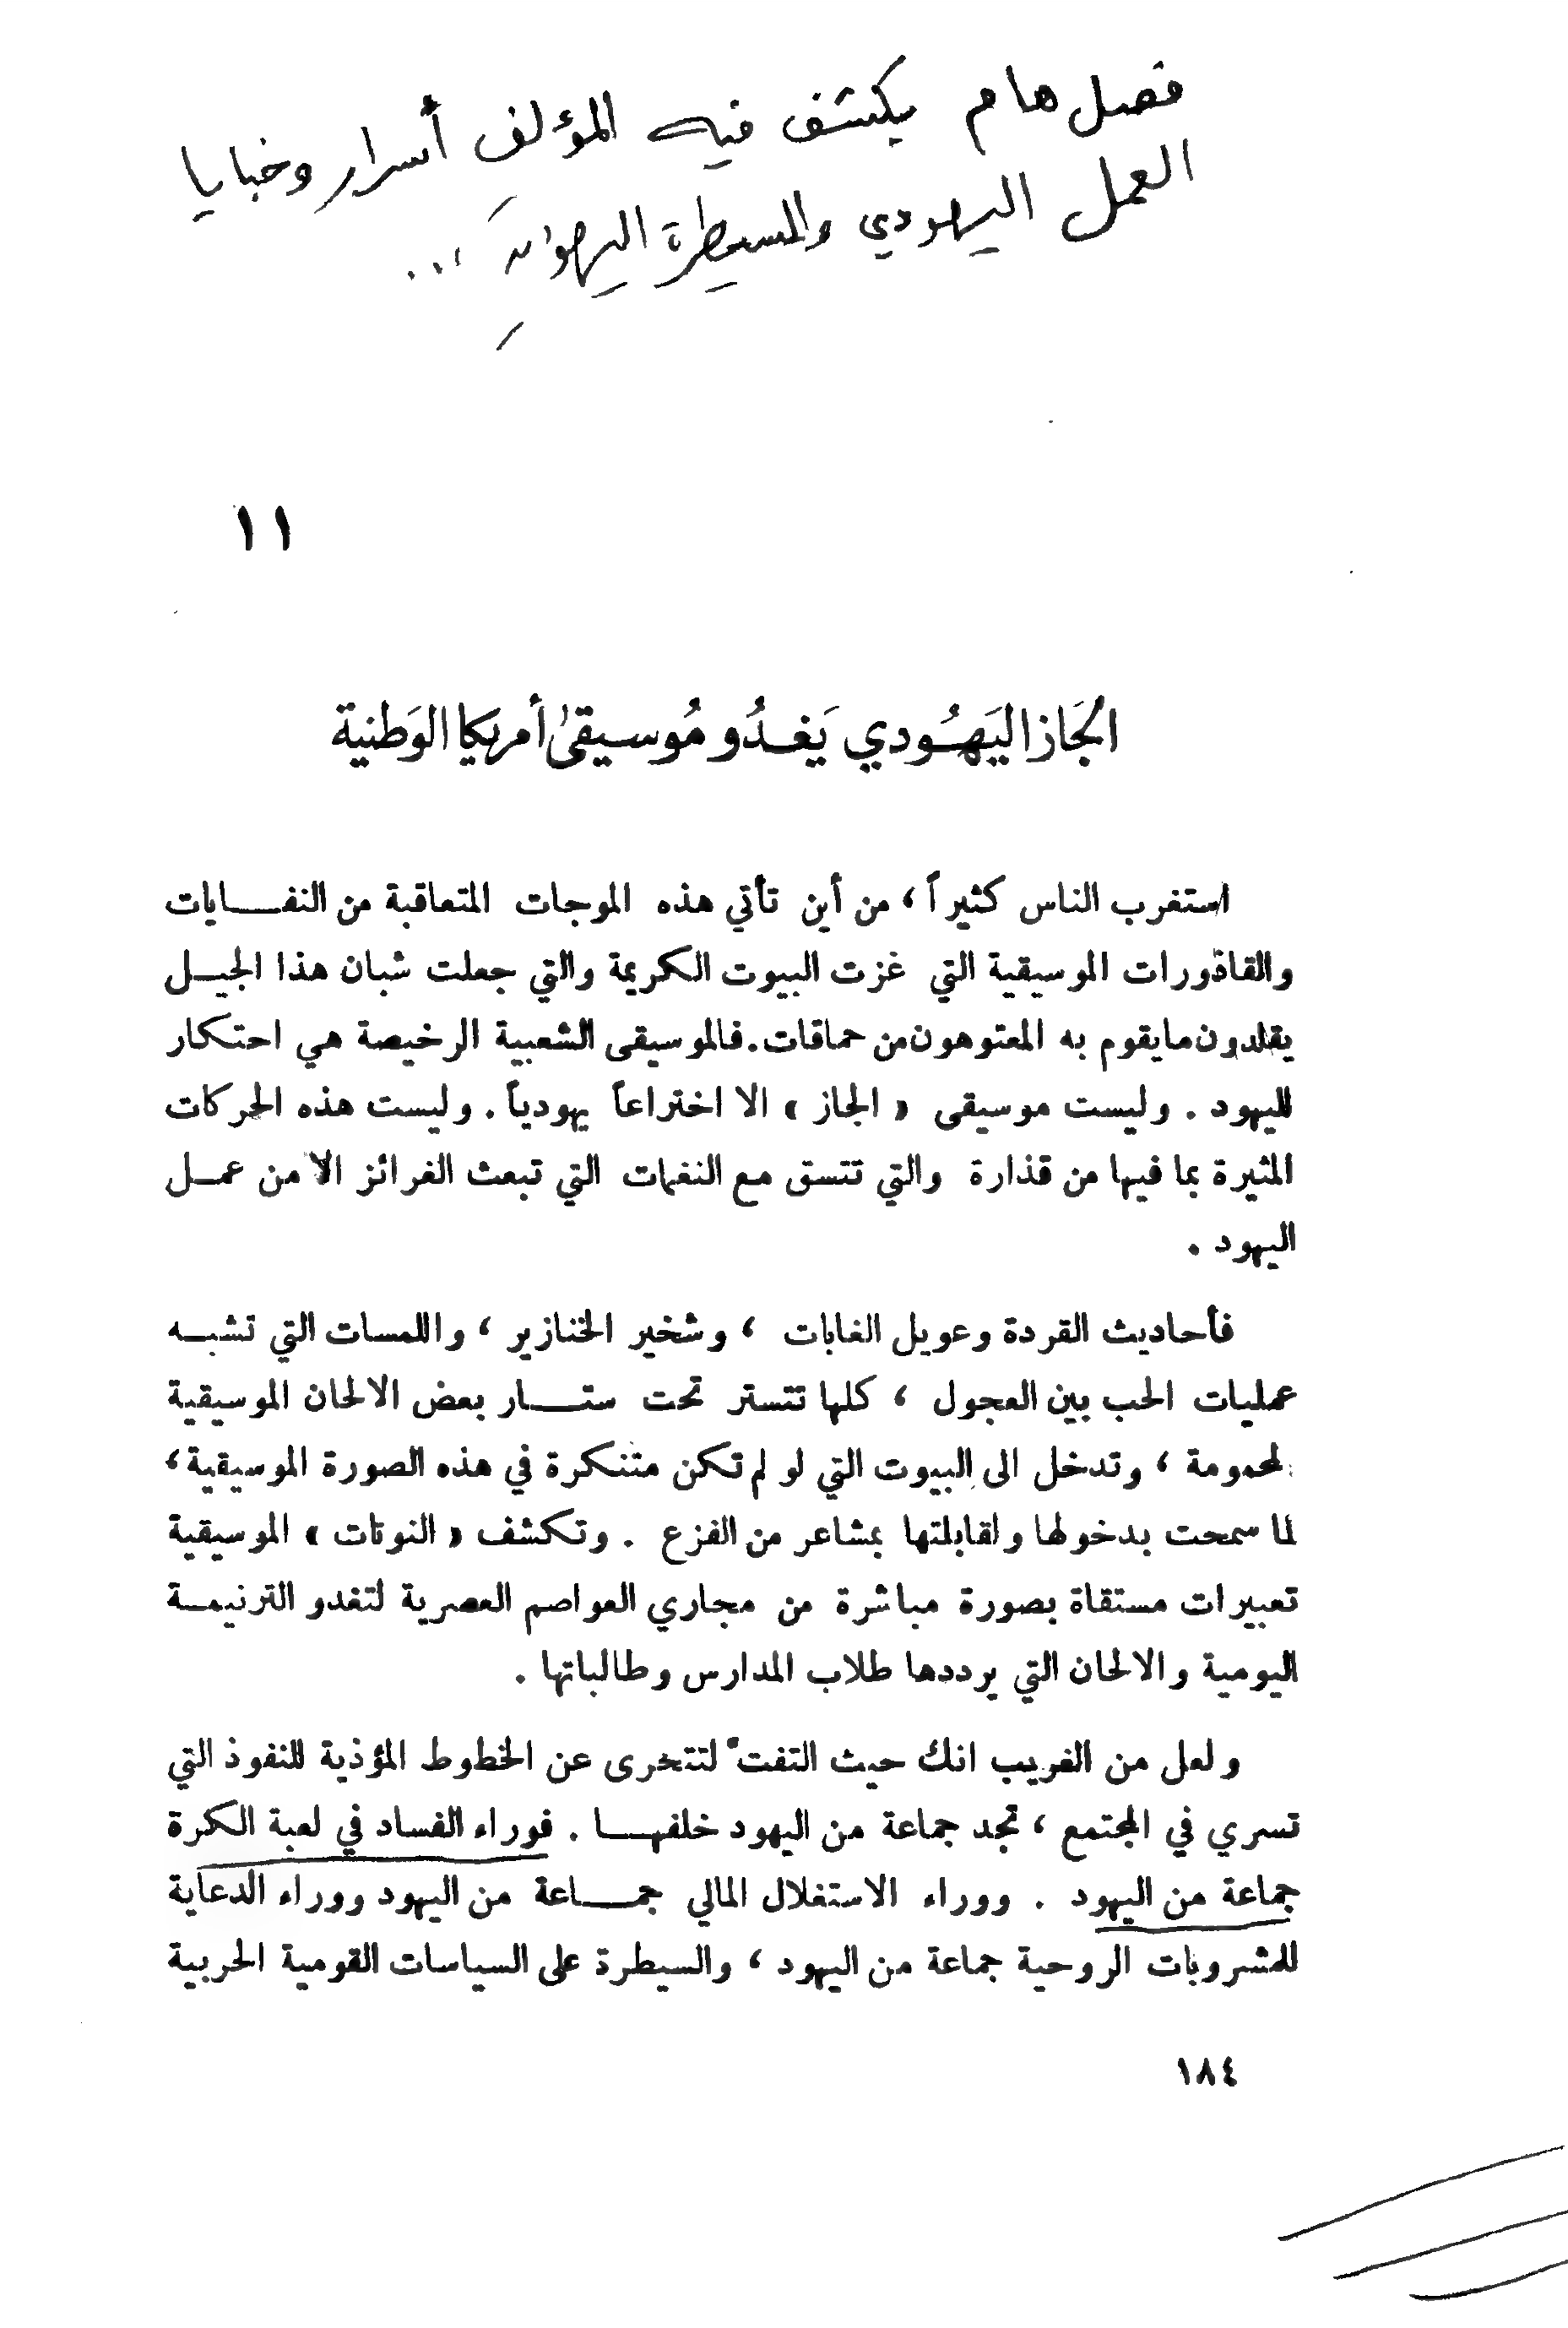 فصل هام يكشف فيه المؤلف أسرار وخبايا
العمل اليهودي والسيطرة اليهودية ...
١١
الجَاز اليَهُودي يَغدُو مُوسيقىٰ أمريكا الوَطنية
استغرب الناس كثيراً ، من أين تأتي هذه الموجات المتعاقبة من النفايات
والقاذورات الموسيقية التي غزت البيوت الكريمة والتي جعلت شبان هذا الجيل
يقلدون مايقوم به المعتوهون من حماقات . فالموسيقى الشعبية الرخيصة هي احتكار
لليهود . وليست موسيقى « الجاز » الا اختراعاً يهودياً . وليست هذه الحركات
المثيرة بما فيها من قذارة والتي تتسق مع النغمات التي تبعث الغرائز الا من عمل
اليهود .
فأحاديث القردة وعويل الغابات ، وشخير الخنازير ، واللمسات التي تشبه
عمليات الحب بين العجول ، كلها تتستر تحت ستار بعض الالحان الموسيقية
المحمومة ، وتدخل الى البيوت التي لو لم تكن متنكرة في هذه الصورة الموسيقية ،
لما سمحت بدخولها ولقابلتها بمشاعر من الفزع . وتكشف « النوتات » الموسيقية
تعبيرات مستقاة بصورة مباشرة من مجاري العواصم العصرية لتغدو الترنيمة
اليومية والالحان التي يرددها طلاب المدارس وطالباتها .
ولعل من الغريب انك حيث التفتّ لتتحرى عن الخطوط المؤذية للنفوذ التي
تسري في المجتمع ، تجد جماعة من اليهود خلفها . فوراء الفساد في لعبة الكرة
جماعة من اليهود . ووراء الاستغلال المالي جماعة من اليهود ووراء الدعاية
للمشروبات الروحية جماعة من اليهود ، والسيطرة على السياسات القومية الحربية
١٨٤